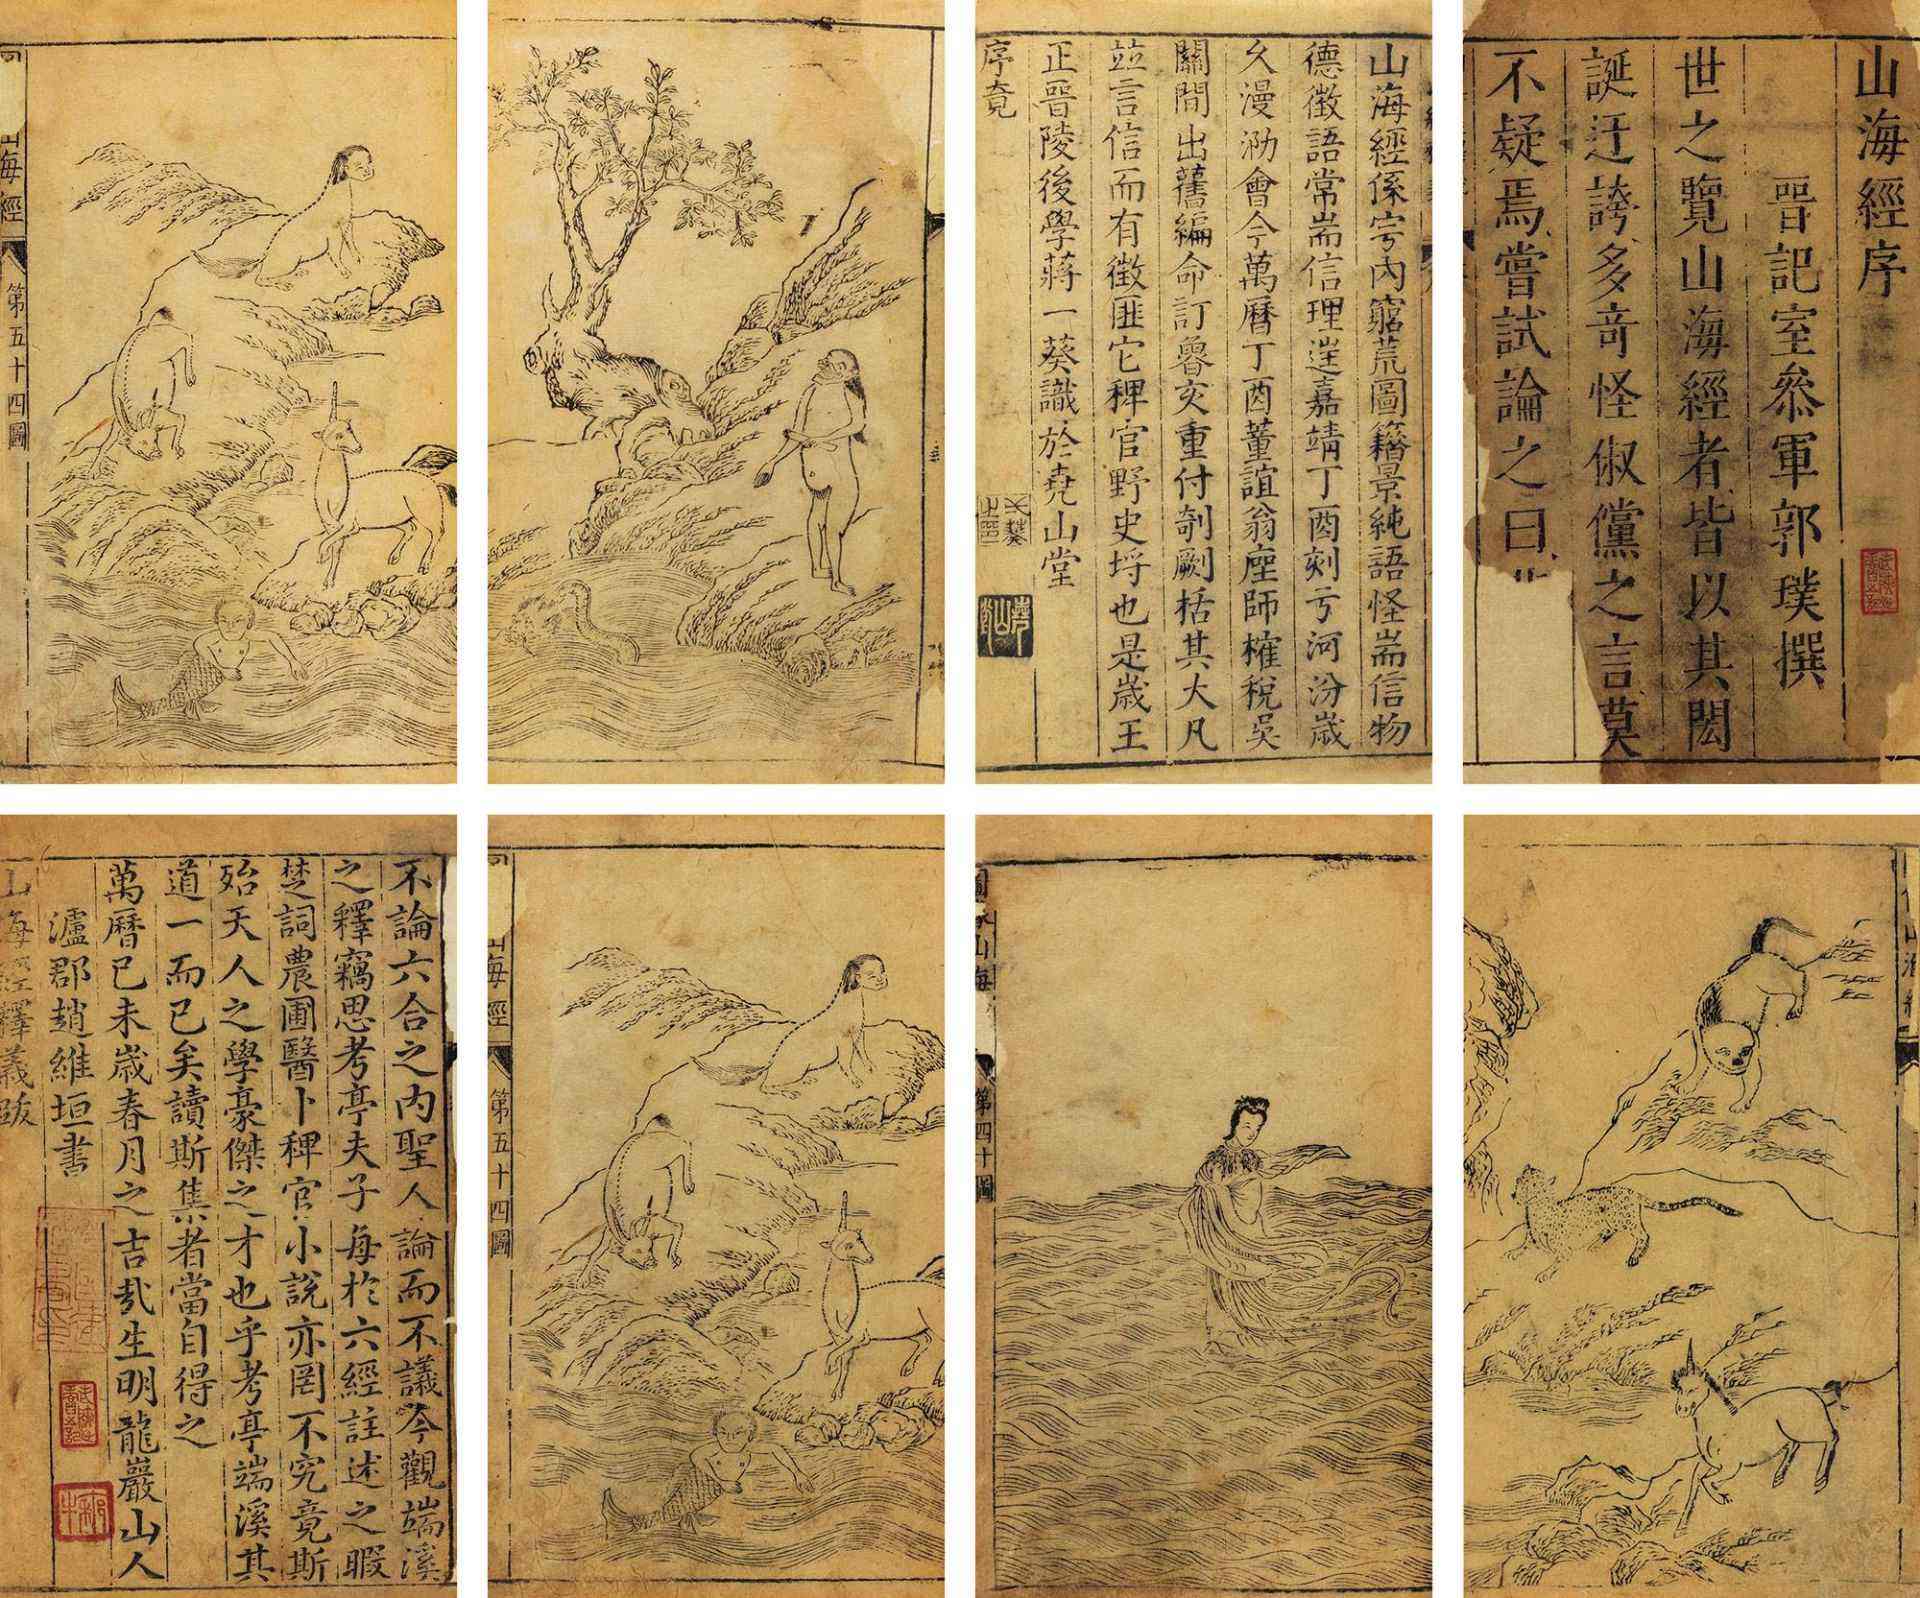 山海經序
晉記室參軍郭璞撰
世之覽山海經者皆以其閎
誕迂誇多奇怪俶儻之言莫
不疑焉嘗試論之曰
山海經係宇內窮荒圖籍景純語怪耑信物
德徵語常耑信理逹嘉靖丁酉刻亏河汾歲
久漫泐會今萬曆丁酉董誼翁座師榷稅吳
關間出舊編命訂魯亥重付剞劂栝其大凡
竝言信而有徵匪它稗官野史埒也是歲王
正晉陵後學蔣一葵識於堯山堂
序竟
山海經 第五十四圖
山海經
圖 山海 第四十圖
山海經 第五十四圖
不論六合之內聖人論而不議今觀端溪
之釋竊思考亭夫子每於六經註述之暇
楚詞農圃醫卜稗官小說亦罔不究竟斯
殆天人之學豪傑之才也乎考亭端溪其
道一而已矣讀斯集者當自得之
萬曆已未歲春月之吉哉生明龍巖山人
瀘郡趙維垣書
山海經釋義跋